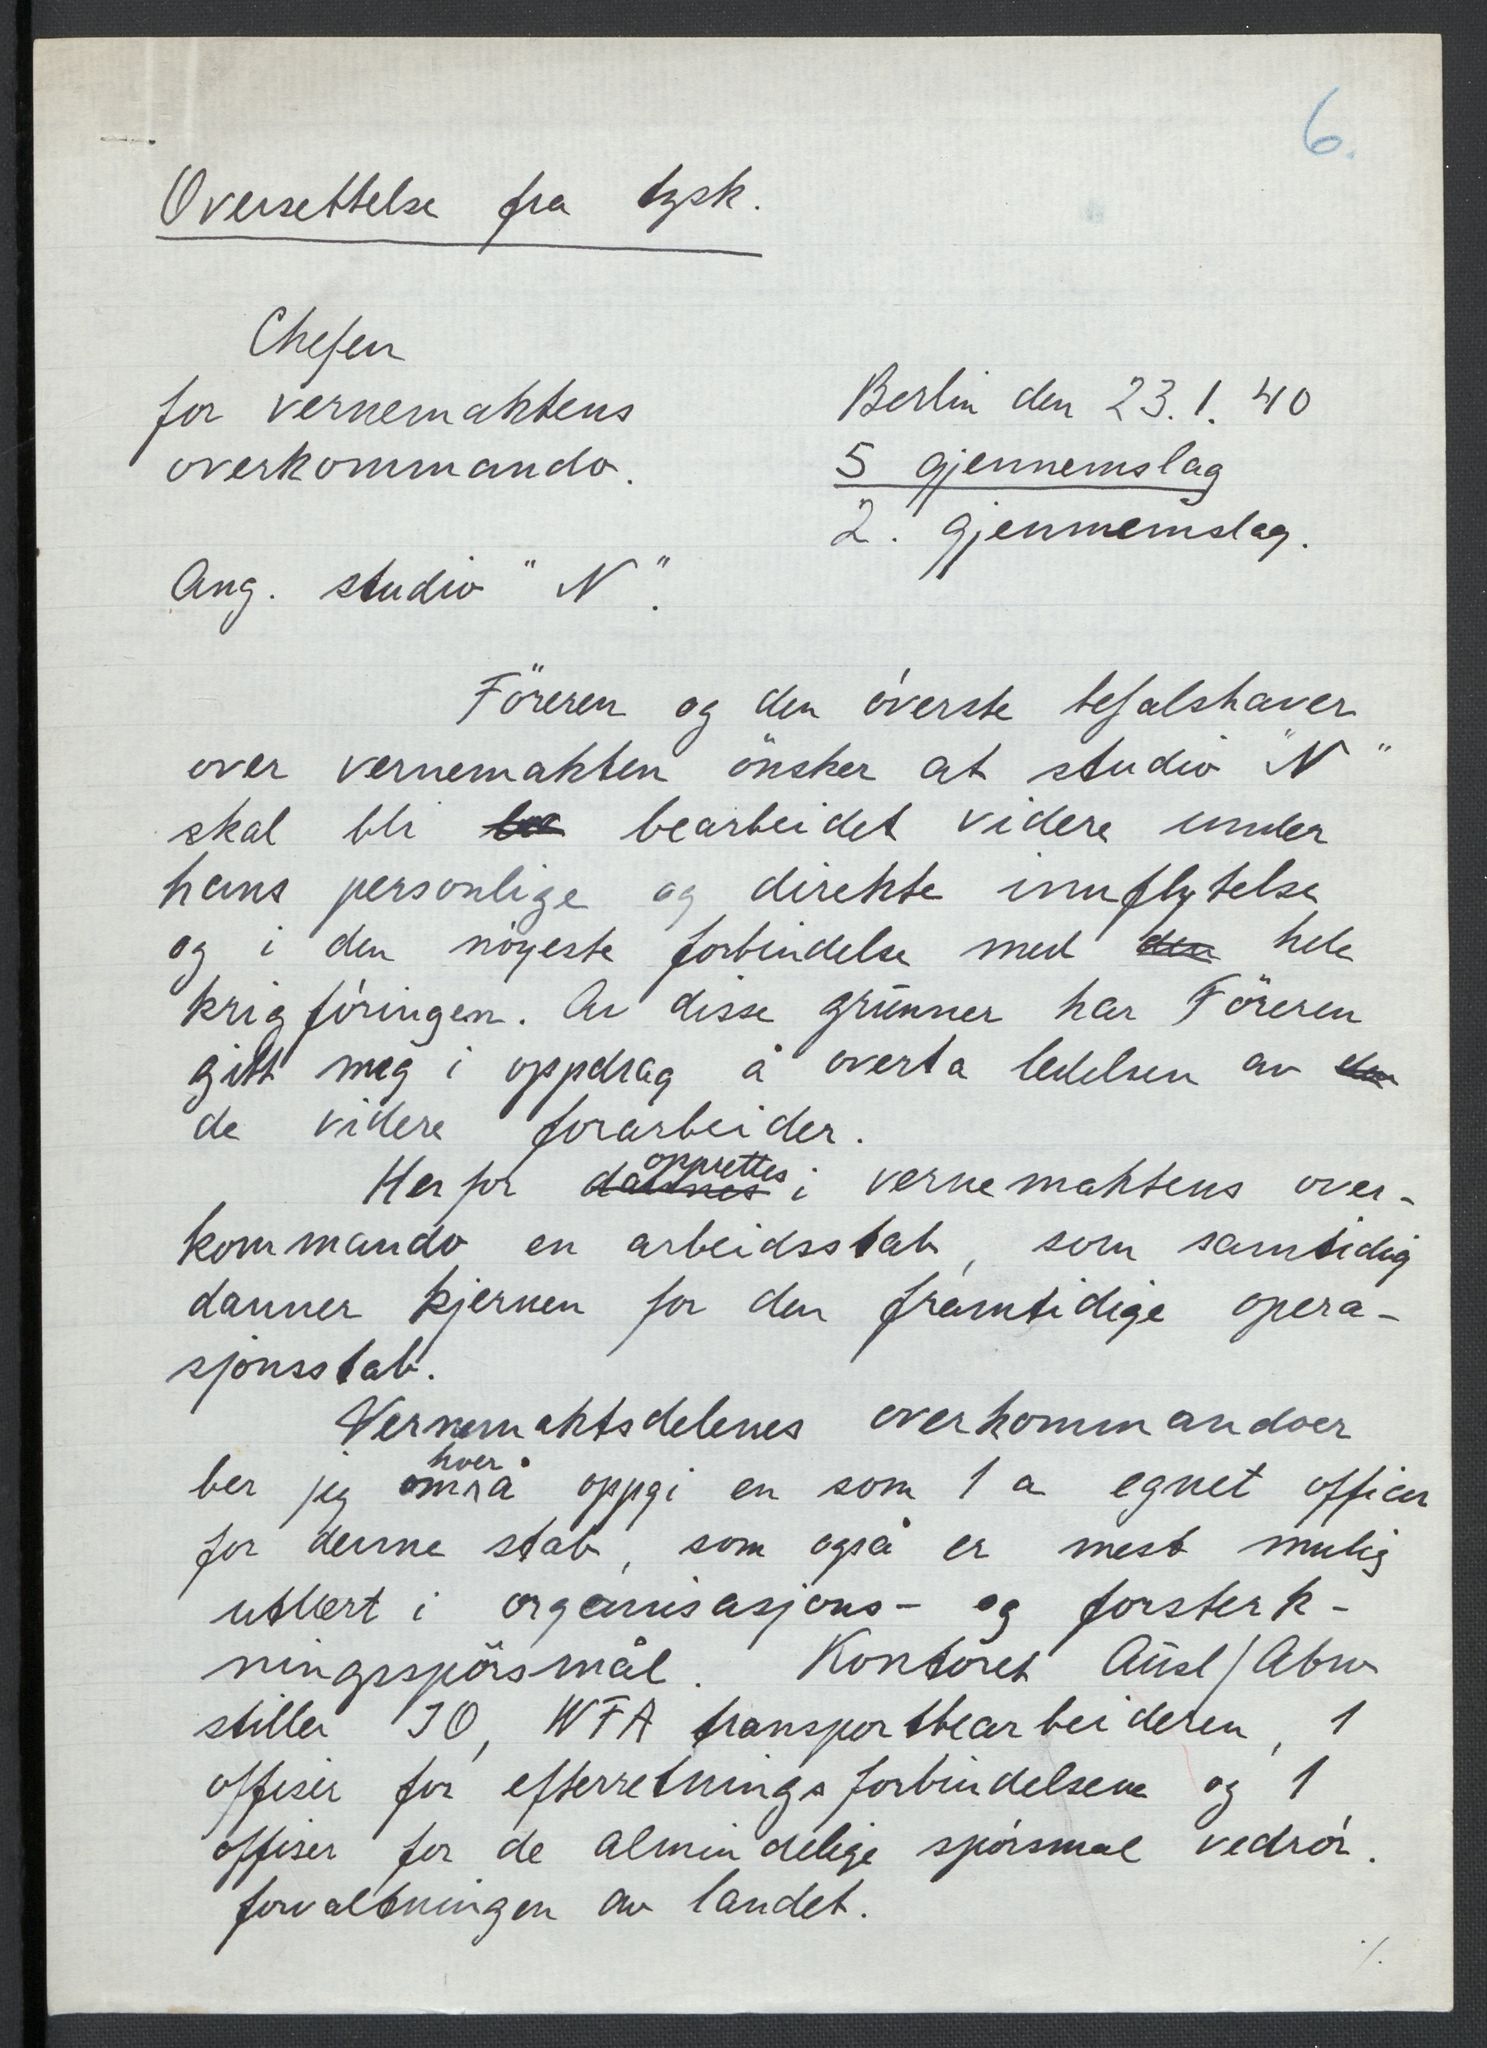 6.
Oversettelse fra tysk.
Chefen
for vernemaktens
overkommando.
Berlin den 23.1.40
5 gjennemslag
2. gjennemslag.
Ang. studio "N".
Föreren og den överste befalshaver
over vernemakten önsker at studio "N"
skal bli bearbeidet videre under
hans personlige og direkte innflytelse
og i den nöyeste forbindelse med den hele
krigföringen. Av disse grunner har Föreren
gitt meg i oppdrag å overta ledelsen av
de videre forarbeider.
Herfor dannes opprettes i vernemaktens over-
kommando en arbeidsstab, som samtidig
danner kjernen for den framtidige opera-
sjonsstab.
Vernemaktsdelenes overkommandoer
ber jeg om å hver oppgi en som 1 a egnet officer
for denne stab, som også er mest mulig
utlært i organisasjons- og forsterk-
ningsspörsmål. Kontoret Ausl/Abw
stiller IO, WFA transportbearbeideren, 1
offiser for efterretningsforbindelsene og 1
offiser for de almindelige spörsmal vedrör.
forvaltningen av landet.
./.